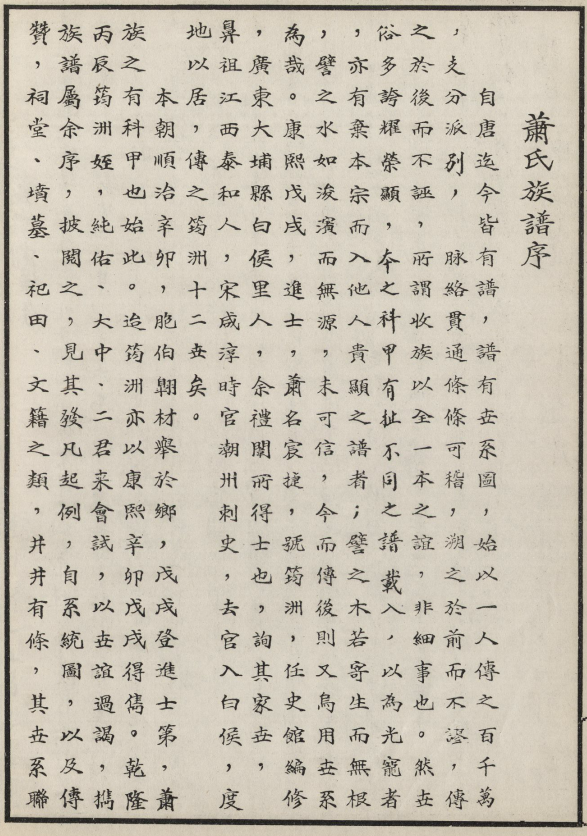 蕭氏族譜序
自唐迄今皆有譜，譜有世系圖，始以一人傳之百千萬
，支分派別，脉絡貫通條條可稽，溯之於前而不謬，傳
之於後而不誣，所謂收族以全一本之誼，非細事也。然世
俗多誇耀榮顯，本之科甲有扯不同之譜載入，以為光寵者
，亦有棄本宗而入他人貴顯之譜者；譬之木若寄生而無根
，譬之水如浚濱而無源，未可信，今而傳後則又烏用世系
為哉。康熙戊戌，進士，蕭名宸捷，號筠洲，任史館編修
，廣東大埔縣白侯里人，余禮闈所得士也，詢其家世，
鼻祖江西泰和人，宋咸淳時官潮州刺史，去官入白侯，度
地以居，傳之筠洲十二世矣。
本朝順治辛卯，胞伯翺材舉於鄉，戊戌登進士第，蕭
族之有科甲也始此。迨筠洲亦以康熙辛卯戊戌得雋。乾隆
丙辰筠洲姪，純佑、大中、二君来會試，以世誼過謁，攜
族譜屬余序，披閱之，見其發凡起例，自系統圖，以及傳
贊，祠堂、墳墓、祀田、文籍之類，井井有條，其世系聯